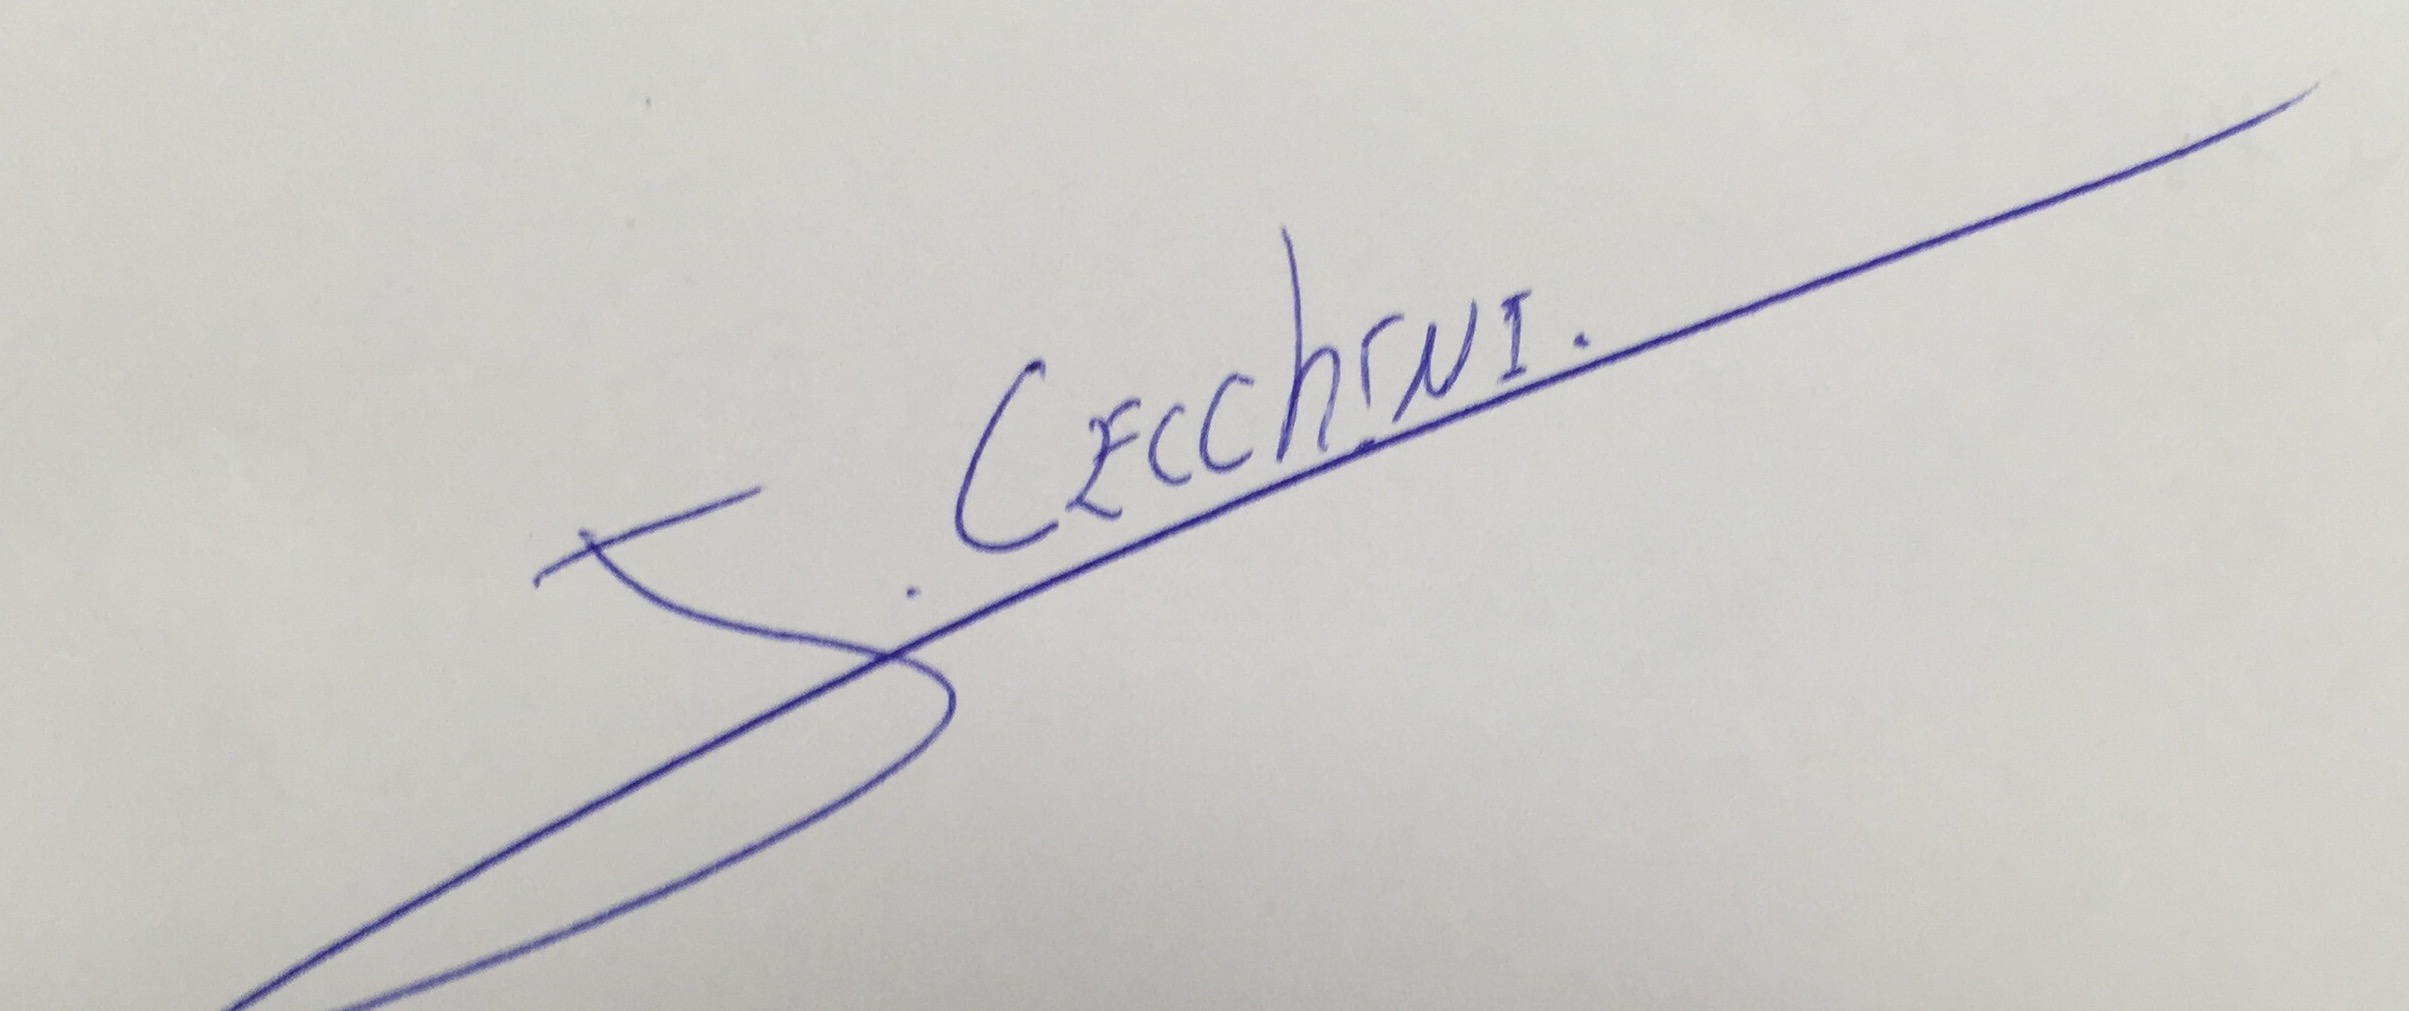 J. CECChINI.